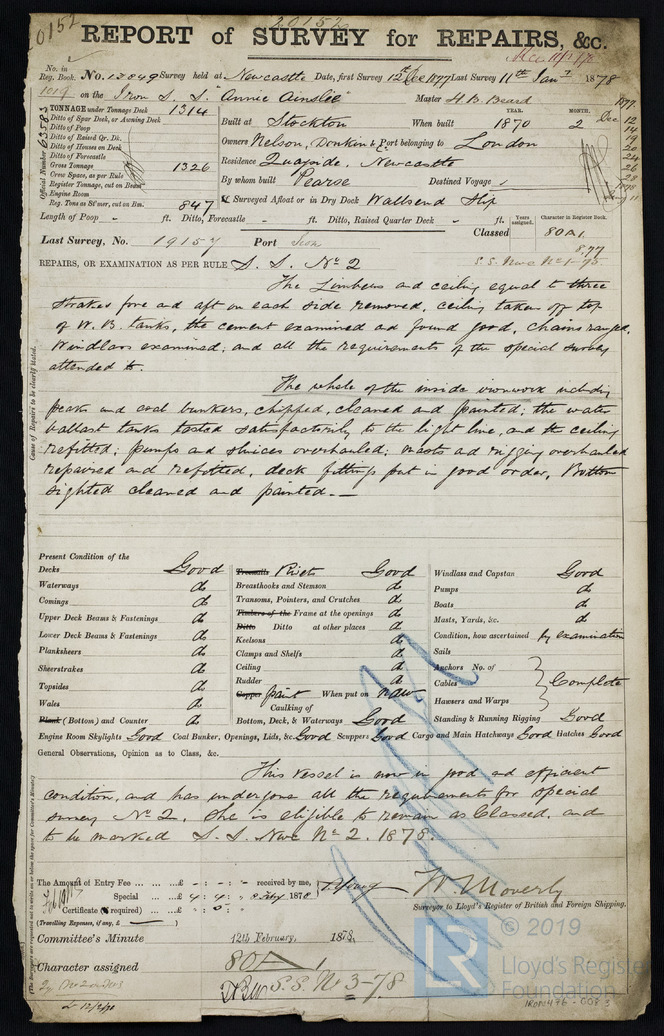 20152
REPORT of SURVEY for REPAIRS, &c.
No. in Reg. Book. No. 12849 Survey held at Newcastle Date, first Survey 12th Dec 1877 Last Survey 11th Jany 1878
1019 on the Iron S. S. "Annie Ainslie" Master H. B. Beard
TONNAGE under Tonnage Deck 1314
Ditto of Spar Deck, or Awning Deck
Ditto of Poop
Ditto of Raised Qr. Dk.
Ditto of Houses on Deck
Ditto of Forecastle
Gross Tonnage 1326
Crew Space, as per Rule
Register Tonnage, cut on Beam
Engine Room
Reg. Tons as St'mer, cut on Bm. 847
Official Number 63583
Built at Stockton When built YEAR. 1870 MONTH. 2
Owners Nelson, Donkin & Co Port belonging to London
Residence Quayside, Newcastle
By whom built Pearse Destined Voyage
If Surveyed Afloat or in Dry Dock Wallsend Slip
1877
Dec 12
14
19
20
24
26
28
1878
Jany 11
Length of Poop - ft. Ditto, Forecastle - ft. Ditto, Raised Quarter Deck - ft.
Last Survey, No. 19157 Port
Classed Years assigned. Character in Register Book. 80A1
8,77
S.S. Nwc No 1-75
REPAIRS, OR EXAMINATION AS PER RULE S. S. No 2
The Limbers and ceiling equal to three
strakes fore and aft on each side removed, ceiling taken off top
of W. B. tanks, the cement examined and found good, chains ranged,
Windlass examined; and all the requirements of the special survey
attended to.
The whole of the inside ironwork including
peaks and coal bunkers, chipped, cleaned and painted; the water
ballast tanks tested satisfactorily to the light line, and the ceiling
refitted; pumps and sluices overhauled; masts and rigging overhauled
repaired and refitted, deck fittings put in good order, Bottom
sighted cleaned and painted.—
Cause of Repairs to be clearly stated.
Present Condition of the
Decks Good
Waterways do
Comings do
Upper Deck Beams & Fastenings do
Lower Deck Beams & Fastenings do
Planksheers do
Sheerstrakes do
Topsides do
Wales do
Plank (Bottom) and Counter do
Treenails Rivets Good
Breasthooks and Stemson do
Transoms, Pointers, and Crutches do
Timbers of the Frame at the openings do
Ditto Ditto at other places do
Keelsons do
Clamps and Shelfs do
Ceiling do
Rudder do
Copper paint When put on now
Caulking of
Bottom, Deck, & Waterways Good
Windlass and Capstan Good
Pumps do
Boats do
Masts, Yards, &c. do
Condition, how ascertained by examination
Sails
Anchors No. of
Cables Complete
Hawsers and Warps
Standing & Running Rigging Good
Engine Room Skylights Good Coal Bunker, Openings, Lids, &c. Good Scuppers Good Cargo and Main Hatchways Good Hatches Good
General Observations, Opinion as to Class, &c.
This Vessel is now in good and efficient
condition, and has undergone all the requirements for special
survey No 2. She is eligible to remain as Classed, and
to be marked S. S. Nwc No 2. 1878.
The Amount of Entry Fee ... ... ... £ : : received by me,
Special ... ... £ 4 : 4 : 1878
Certificate (if required) ... £ : 0 :
(Travelling Expenses, if any, £ )
W. Moverly
Surveyor to Lloyd's Register of British and Foreign Shipping.
Committee's Minute 12th February, 1878.
Character assigned 80A1
S.S. No 3-78
12/2/78
© 2019
LR
Lloyd's Register
Foundation